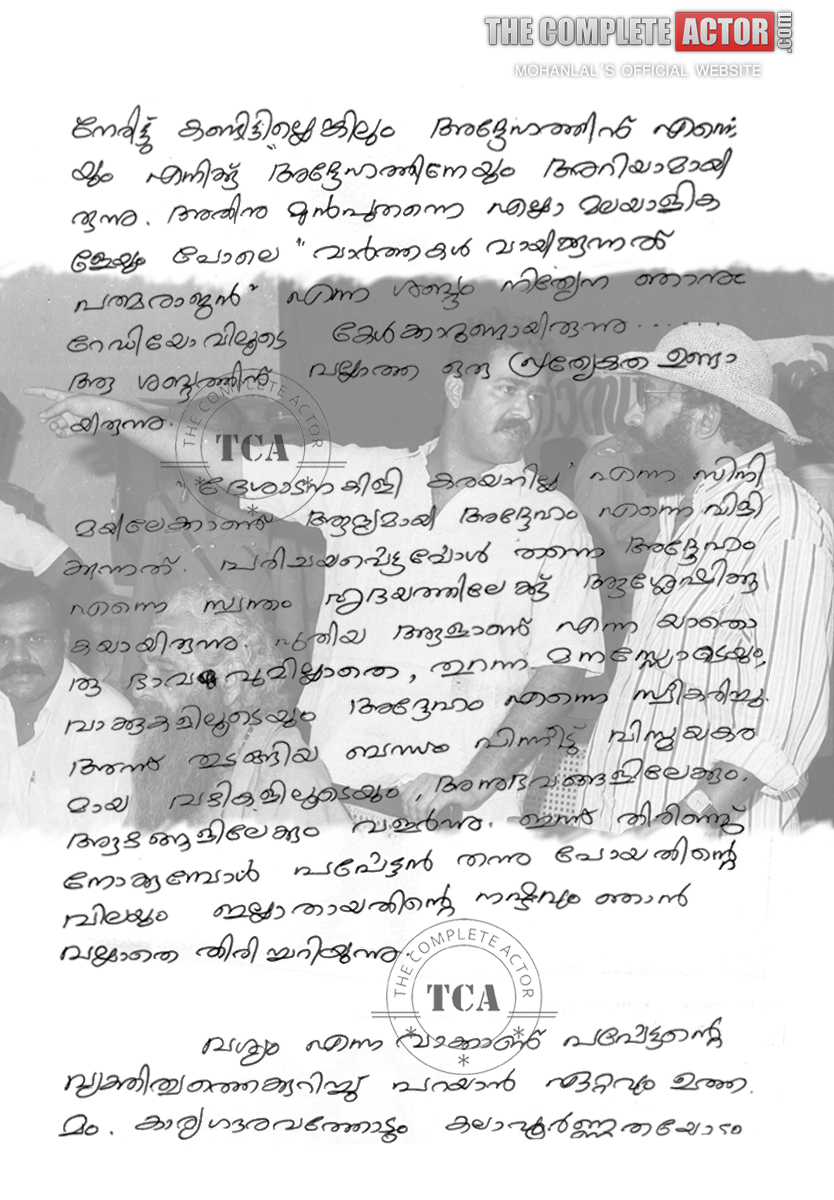 THE COMPLETE ACTOR.com
MOHANLAL'S OFFICIAL WEBSITE
നേരിട്ട് കണ്ടിട്ടില്ലെങ്കിലും അദ്ദേഹത്തിന് എന്നെ
യും എനിക്ക് അദ്ദേഹത്തിനേയും അറിയാമായി
രുന്നു. അതിനു മുൻപുതന്നെ എല്ലാ മലയാളിക
ളേയും പോലെ "വാർത്തകൾ വായിക്കുന്നത്
പത്മരാജൻ" എന്ന ശബ്ദം നിത്യേന ഞാനും
റേഡിയോവിലൂടെ കേൾക്കാറുണ്ടായിരുന്നു......
ആ ശബ്ദത്തിന് വല്ലാത്ത ഒരു പ്രത്യേകത ഉണ്ടാ
യിരുന്നു.
THE COMPLETE ACTOR
TCA
"ദേശാടനകിളി കരയാറില്ല" എന്ന സിനി
മയിലേക്കാണ് ആദ്യമായി അദ്ദേഹം എന്നെ വിളി
ക്കുന്നത്. പരിചയപ്പെട്ടപ്പോൾ തന്നെ അദ്ദേഹം
എന്നെ സ്വന്തം ഹൃദയത്തിലേക്ക് ആശ്ലേഷിക്കു
കയായിരുന്നു. പുതിയ ആളാണ് എന്ന യാതൊ
രു ഭാവവുമില്ലാതെ, തുറന്ന മനസ്സോടെയും,
വാക്കുകളിലൂടെയും അദ്ദേഹം എന്നെ സ്വീകരിച്ചു.
അന്ന് തുടങ്ങിയ ബന്ധം പിന്നീട് വിസ്മയകര
മായ വഴികളിലൂടെയും, അനുഭവങ്ങളിലേക്കും,
ആഴങ്ങളിലേക്കും വളർന്നു. ഇന്ന് തിരിഞ്ഞ്
നോക്കുമ്പോൾ പപ്പേട്ടൻ തന്നു പോയതിന്റെ
വിലയും ഇല്ലാതായതിന്റെ നഷ്ടവും ഞാൻ
വല്ലാതെ തിരിച്ചറിയുന്നു.
THE COMPLETE ACTOR
TCA
വശ്യം എന്ന വാക്കാണ് പപ്പേട്ടന്റെ
വ്യക്തിത്വത്തെക്കുറിച്ച് പറയാൻ ഏറ്റവും ഉത്ത
മം. കാര്യഗൗരവത്തോടും കലാപൂർണ്ണതയോടും